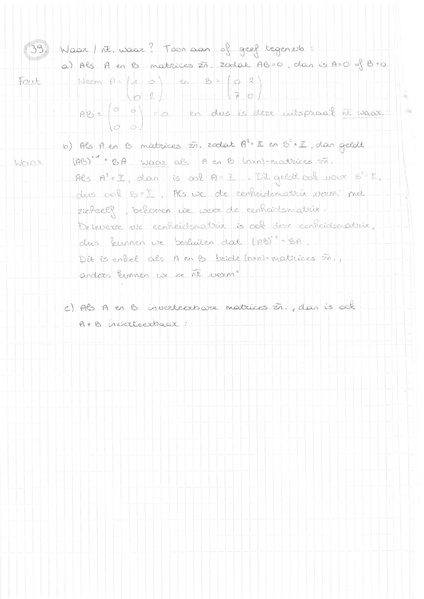 39. Waar / nt. waar? Toon aan of geef tegenvb:
a) Als A en B matrices zn. zodat AB=0, dan is A=0 of B=0
Fout Neem A= en B=
AB= (0 0 0 0) = 0 en dus is deze uitspraak nt waar
b) Als A en B matrices zn. zodat A²=I en B²=I, dan geldt
Waar (AB)⁻¹=BA waar als A en B (nxn)-matrices zn.
Als A²=I, dan is ook A=I. Dit geldt ook voor B²=I,
dus ook B=I. Als we de eenheidsmatrix verm. met
zichzelf, bekomen we weer de eenheidsmatrix.
De inverse vd eenheidsmatrix is ook deze eenheidsmatrix,
dus kunnen we besluiten dat (AB)⁻¹=BA.
Dit is enkel als A en B beide (nxn)-matrices zn.,
anders kunnen we ze nt verm.
c) Als A en B inverteerbare matrices zn., dan is ook
A+B inverteerbaar: